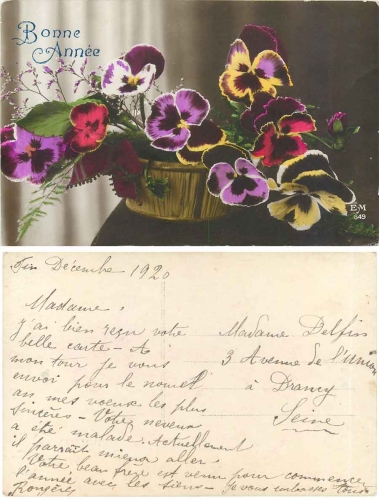 Bonne
Année
E.M
649
Fin Décembre 1920
Madame,
J'ai bien reçu votre
belle carte - A
mon tour je vous
envoi pour le nouvel
an mes voeux les plus
sincères - Votre neveu
a été malade. Actuellement
il paraît mieux aller.
Votre beau frère est venu pour commencer
l'année avec les siens - Je vous embrasse tous
Madame Delfin
3 Avenue de l'Union
à Drancy
Seine